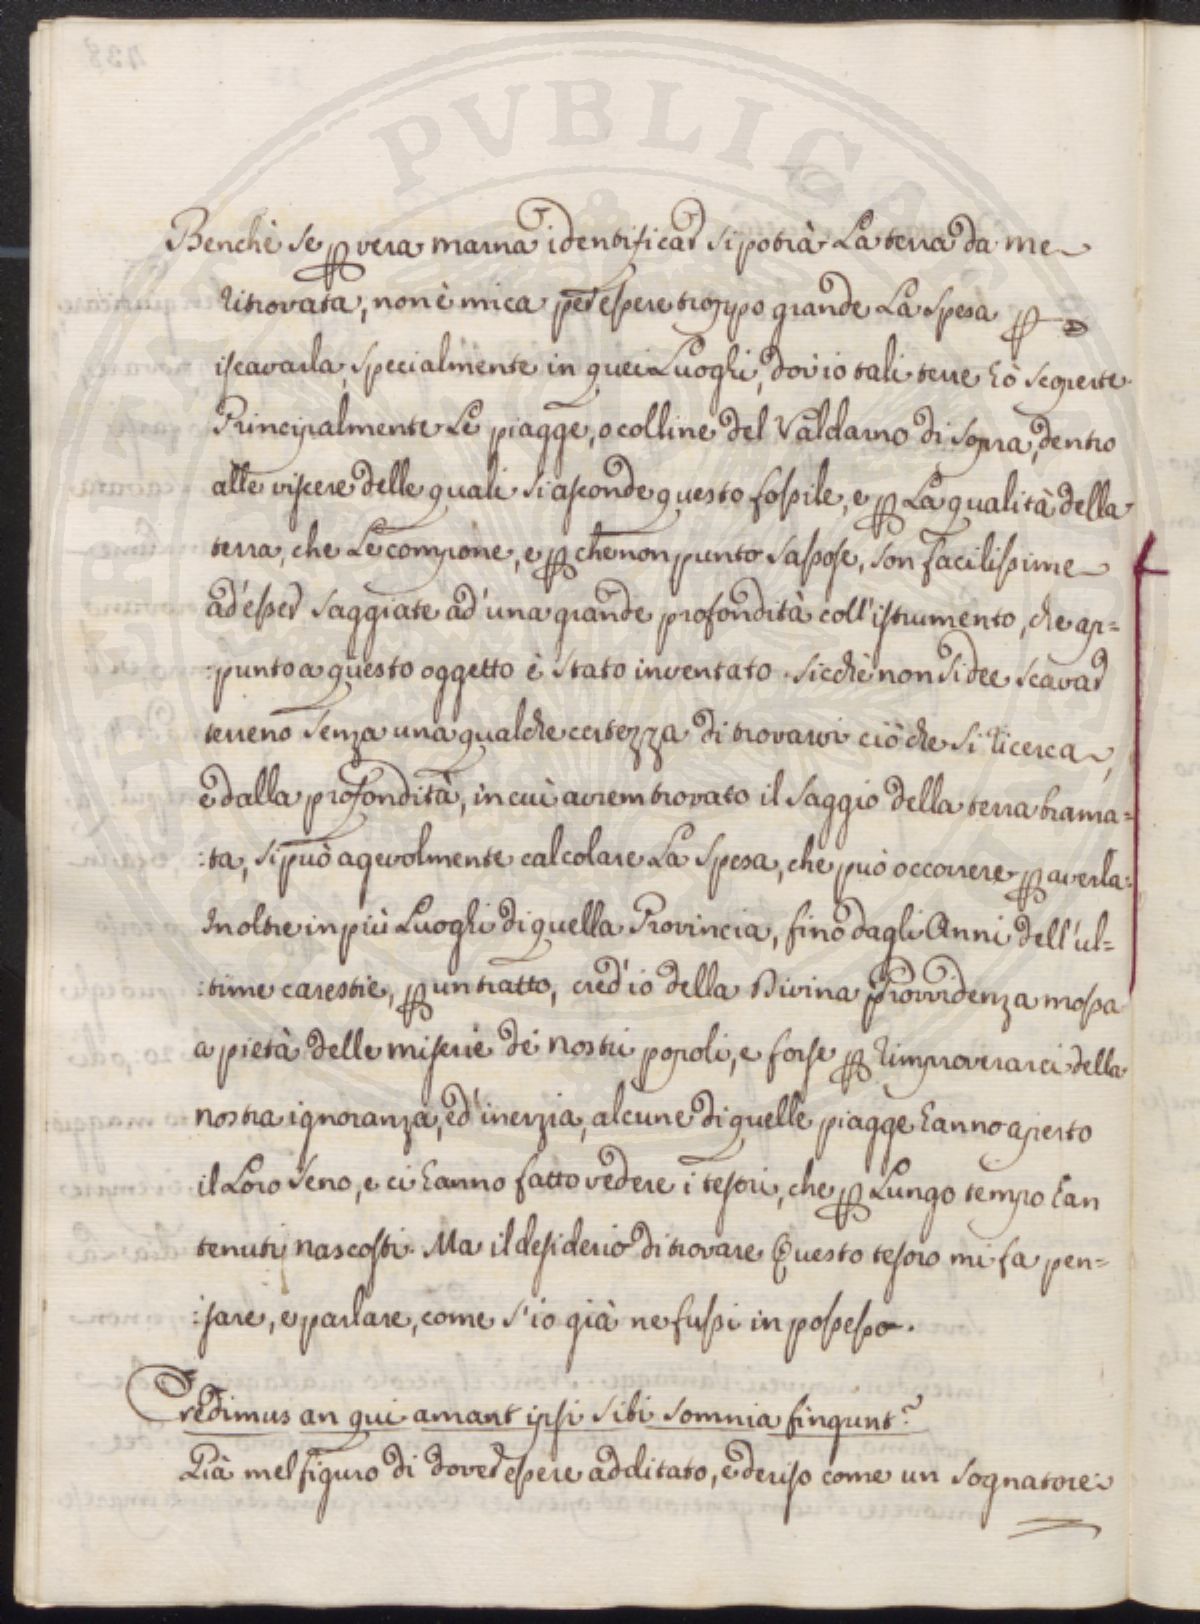 PVBLICA
Benchè se p vera marna identificar si potrà La terra da me
ritrovata, non è mica per essere troppo grande La spesa p
iscavarla, specialmente in quei Luoghi, dov'io tali terre hò scoperte.
Principalmente Le piagge, o colline del Valdarno di sopra, dentro
alle viscere delle quali si asconde questo fossile, e p La qualità della
terra, che Le compone, e p che non punto sassose, son facilissime
ad'esser saggiate ad'una grande profondità coll'istrumento, che ap=
:punto a questo oggetto è stato inventato. Sicchè non si dee scavar
terreno senza una qualche certezza di trovarvi ciò che si ricerca,
e dalla profondità, in cui avrem trovato il saggio della terra brama=
:ta, si può agevolmente calcolare La spesa, che può occorrere p averla:
Inoltre in più Luoghi di quella Provincia, fino dagli Anni dell'ul=
:time carestie, p un tratto, cred'io della Divina Provvidenza mossa
a pietà delle miserie de' nostri popoli, e forse p rimproverarci della
nostra ignoranza, ed'inerzia, alcune di quelle piagge hanno aperto
il Loro seno, e ci hanno fatto vedere i tesori, che p Lungo tempo han
tenuti nascosti. Ma il desiderio di trovare Questo tesoro mi fa pen=
:sare, e parlare, come s'io già ne fussi in possesso.
Credimus an qui amant ipsi sibi somnia fingunt?
Già mel figuro di dover essere additato, e deriso come un sognatore: